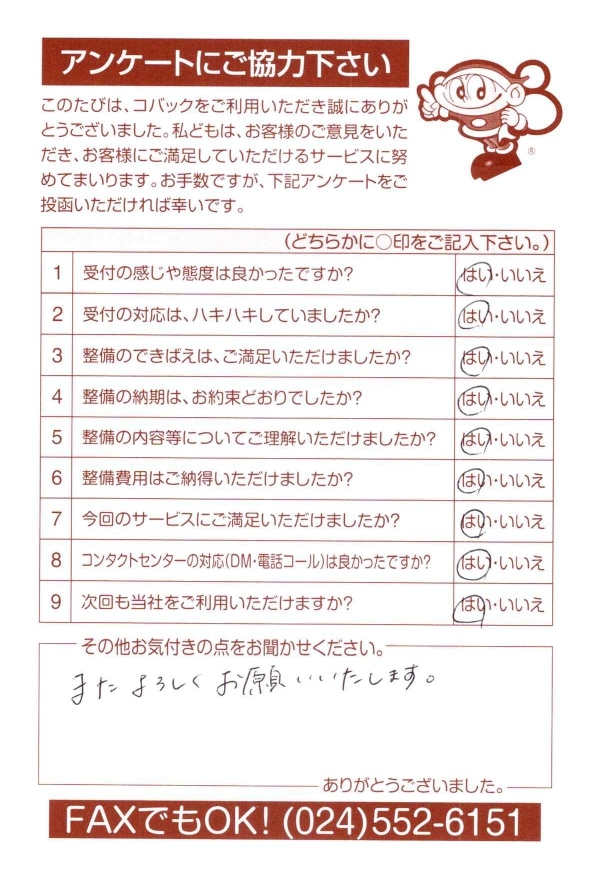 アンケートにご協力下さい
このたびは、コバックをご利用いただき誠にありが
とうございました。私どもは、お客様のご意見をいた
だき、お客様にご満足していただけるサービスに努
めてまいります。お手数ですが、下記アンケートをご
投函いただければ幸いです。
®
(どちらかに○印をご記入下さい。)
1 受付の感じや態度は良かったですか? はい・いいえ
2 受付の対応は、ハキハキしていましたか? はい・いいえ
3 整備のできばえは、ご満足いただけましたか? はい・いいえ
4 整備の納期は、お約束どおりでしたか? はい・いいえ
5 整備の内容等についてご理解いただけましたか? はい・いいえ
6 整備費用はご納得いただけましたか? はい・いいえ
7 今回のサービスにご満足いただけましたか? はい・いいえ
8 コンタクトセンターの対応(DM・電話コール)は良かったですか? はい・いいえ
9 次回も当社をご利用いただけますか? はい・いいえ
その他お気付きの点をお聞かせください。
またよろしくお願いいたします。
ありがとうございました。
FAXでもOK! (024)552-6151